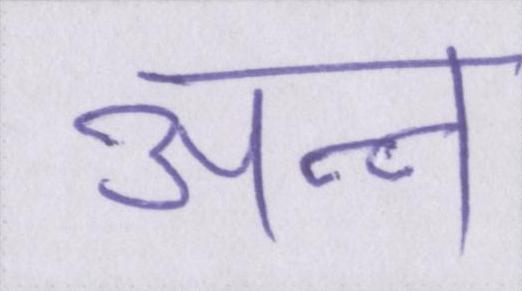 अन्न